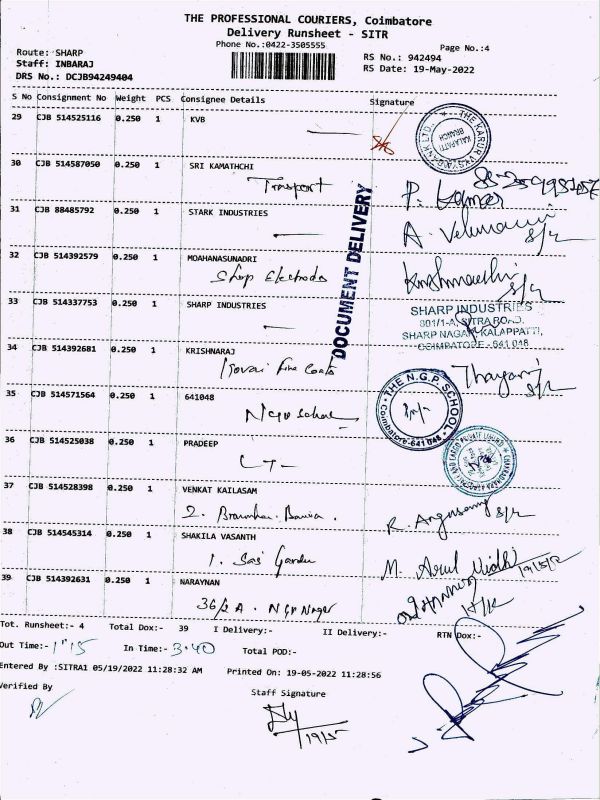 THE PROFESSIONAL COURIERS, Coimbatore
Delivery Runsheet - SITR
Phone No.:0422-3505555
Page No.:4
Route: SHARP
RS No.: 942494
Staff: INBARAJ
RS Date: 19-May-2022
DRS No.: DCJB94249404
S No Consignment No Weight PCS Consignee Details Signature
29 CJB 514525116 0.250 1 KVB
THE KARUR VYSYA BANK LTD.
KALAPATTI
BRANCH
30 CJB 514587050 0.250 1 SRI KAMATHCHI
Transport
P. Kumar
31 CJB 88485792 0.250 1 STARK INDUSTRIES
A. Velumani
DOCUMENT DELIVERY
32 CJB 514392579 0.250 1 MOAHANASUNADRI
Sharp Electrodes
33 CJB 514337753 0.250 1 SHARP INDUSTRIES
SHARP INDUSTRIES
801/1-A, SITRA ROAD,
SHARP NAGAR, KALAPPATTI,
COIMBATORE - 641 048
34 CJB 514392681 0.250 1 KRISHNARAJ
Kovai Fine Coats
35 CJB 514571564 0.250 1 641048
THE N.G.P. SCHOOL
Coimbatore-641 048
36 CJB 514525038 0.250 1 PRADEEP
37 CJB 514528398 0.250 1 VENKAT KAILASAM
38 CJB 514545314 0.250 1 SHAKILA VASANTH
1. Sai Garden
39 CJB 514392631 0.250 1 NARAYNAN
36/2 A. NGP Nagar
Tot. Runsheet:- 4 Total Dox:- 39 I Delivery:- II Delivery:- RTN Dox:-
Out Time:- 1"15 In Time:- 3.40 Total POD:-
Entered By :SITRA1 05/19/2022 11:28:32 AM Printed On: 19-05-2022 11:28:56
Verified By
Staff Signature
19/5